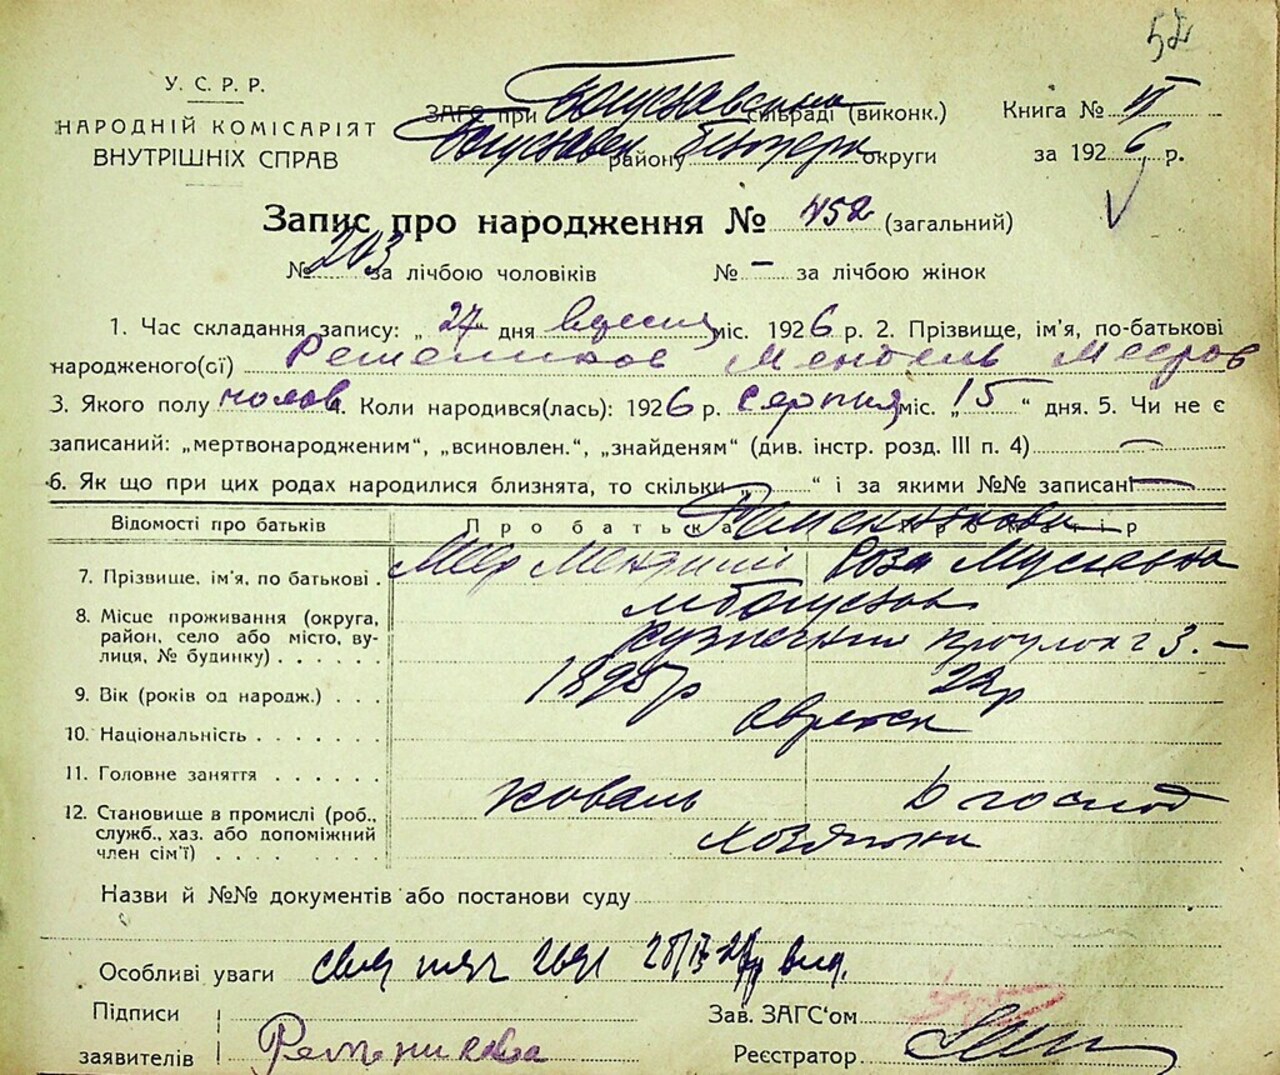 52
У. С. Р. Р.
НАРОДНІЙ КОМІСАРІЯТ
ВНУТРІШНІХ СПРАВ
ЗАГС при Богуславським сільраді (виконк.)
Богуславськ району округи
Книга № VI
за 1926 р.
Запис про народження № 452 (загальний)
№ 203 за лічбою чоловіків № – за лічбою жінок
1. Час складання запису: „ 27 дня вересня міс. 1926 р. 2. Прізвище, ім'я, по-батькові
народженого(ої) Мендель Меєров
3. Якого полу чолов 4. Коли народився(лась): 1926 р. серпня міс. „ 15 “ дня. 5. Чи не є
записаний: „мертвонародженим“, „всиновлен.“, „знайденям“ (див. інстр. розд. III п. 4) —
6. Як що при цих родах народилися близнята, то скільки „ “ і за якими №№ записані —
Відомості про батьків Про батька Про матір
7. Прізвище, ім'я, по батькові . Меер Роза
8. Місце проживання (округа, район, село або місто, вулиця, № будинку) . . . . . . м Богуслав
3. –
9. Вік (років од народж.) . . . 1895 р 22 р
10. Національність . . . . . . . єврейск
11. Головне заняття . . . . . . коваль
12. Становище в промислі (роб., служб., хаз. або допоміжний член сім'ї) . . . . . . .
Назви й №№ документів або постанови суду
Особливі уваги вид.
Підписи
заявителів
Зав. ЗАГС'ом
Реєстратор